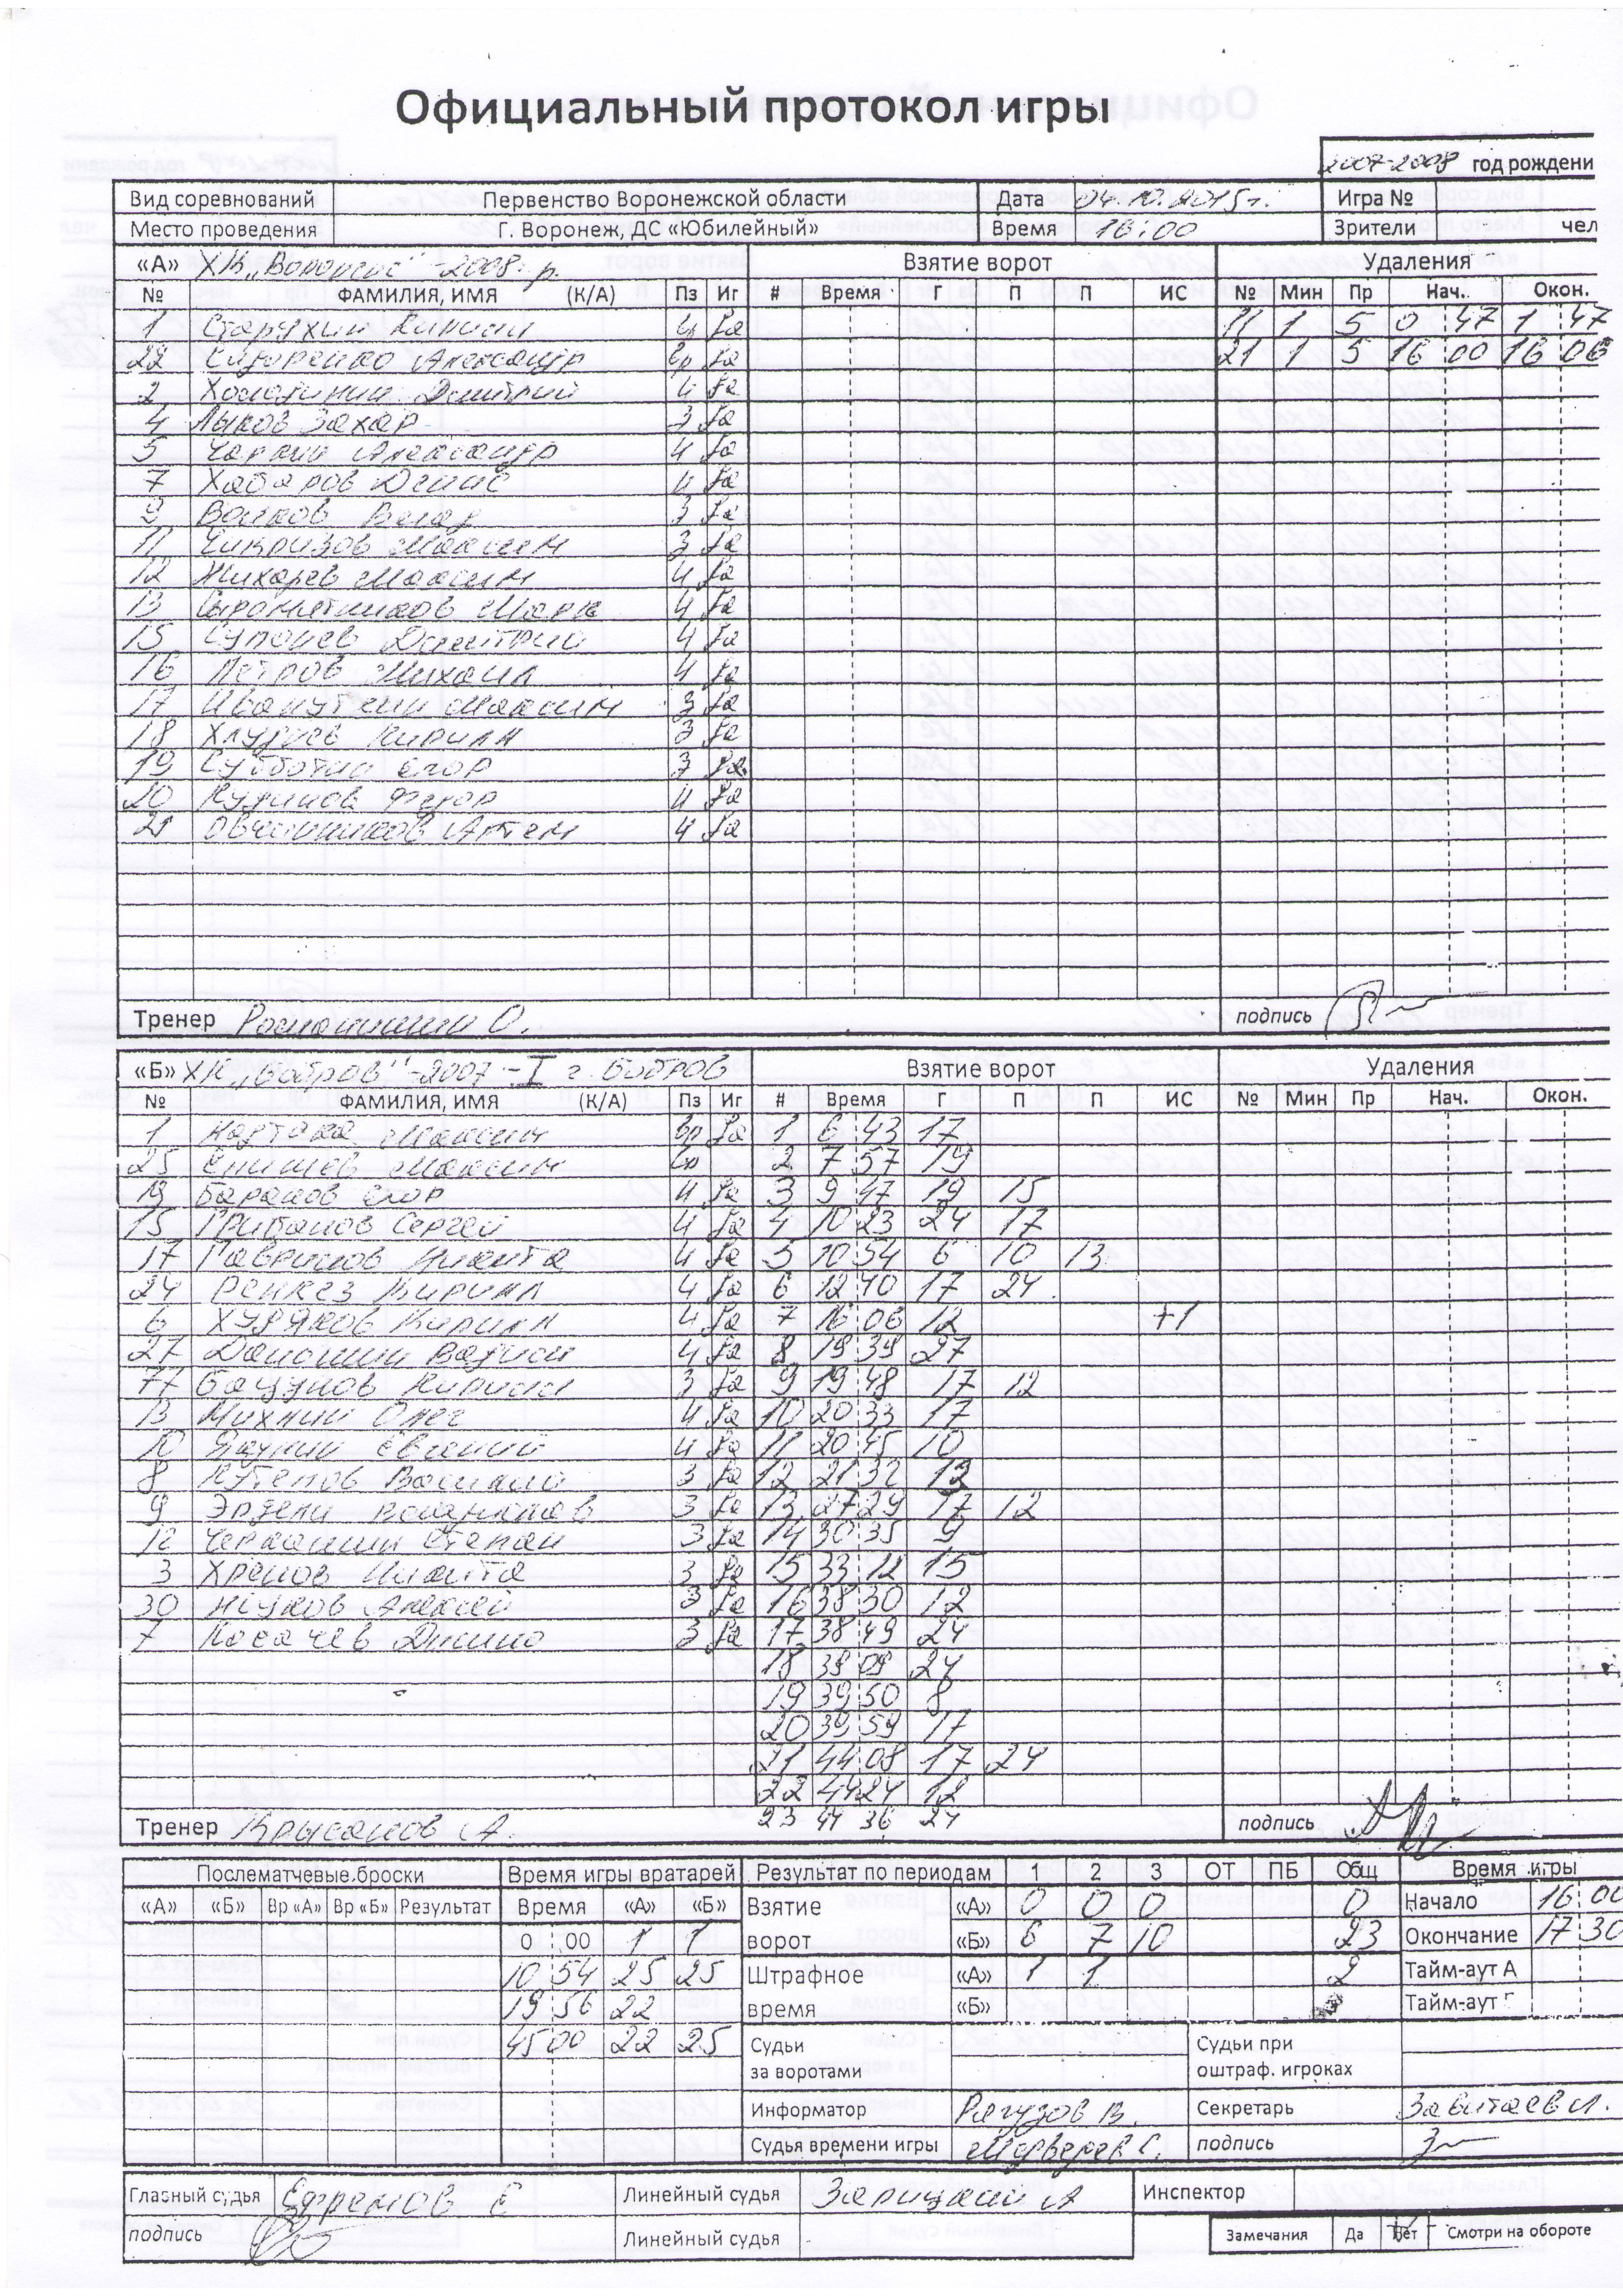 Официальный протокол игры
2007-2008 год рождени
Вид соревнований Первенство Воронежской области Дата 04.10.2015г. Игра №
Место проведения Г. Воронеж, ДС «Юбилейный» Время 16:00 Зрители чел
«А» 2008 г.р. Взятие ворот Удаления
№ ФАМИЛИЯ, ИМЯ (К/А) Пз Иг # Время Г П П ИС № Мин Пр Нач. Окон.
1 Старухин Кирилл Да 11 1 5 0 47 1 47
22 Сидоренко Александр Вр Да 21 1 5 16 00 16 06
2 Дмитрий Н Да
4 Лыков Захар З Да
5 Чернин Александр Н Да
7 Хабаров Денис Н Да
Волков Влад З Да
11 Чикризов Максим З Да
12 Жихарев Максим Н Да
13 Сыромятников Марк Н Да
15 Супонев Дмитрий Н Да
16 Петров Михаил Н Да
17 Ивануткин Максим З Да
18 Кирилл З Да
19 Субботин Егор З Да
20 Федор Н Да
21 Овчинников Артем Н Да
Тренер О. подпись
«Б» ХК „Бобров" -2007 -I г. Бобров Взятие ворот Удаления
№ ФАМИЛИЯ, ИМЯ (К/А) Пз Иг # Время Г П П ИС № Мин Пр Нач. Окон.
1 Максим Вр Да 1 6 43 17
25 Максим Вр 2 7 57 19
19 Баранов Егор Н Да 3 9 47 19 15
15 Грибанов Сергей Н Да 4 10 23 24 17
17 Гаврилов Никита Н Да 5 10 54 6 10 13
24 Ренкез Кирилл Н Да 6 12 40 17 24
6 Худяков Кирилл Н Да 7 16 06 12 +1
27 Даношин Н Да 8 19 39 27
77 Бацунов Кирилл З Да 9 19 48 17 12
13 Михнин Олег Н Да 10 20 33 17
10 Евгений Н Да 11 20 45 10
8 Кутепов Василий З Да 12 21 32 13
9 Эрдели З Да 13 27 29 17 12
12 Степан З Да 14 30 35 9
3 Хренов Никита З Да 15 33 12 15
30 Жуков Алексей З Да 16 38 30 12
7 Косачев З Да 17 38 49 24
18 39 09 24
19 39 50 8
20 39 59 17
21 44 08 17 24
22 44 24 12
Тренер Крысанов А. 23 44 36 24 подпись
Послематчевые броски Время игры вратарей Результат по периодам 1 2 3 ОТ ПБ Общ Время игры
«А» «Б» Вр «А» Вр «Б» Результат Время «А» «Б» Взятие «А» 0 0 0 0 Начало 16 00
0 00 1 1 ворот «Б» 6 7 10 23 Окончание 17 30
10 54 25 25 Штрафное «А» 1 1 2 Тайм-аут А
19 56 22 время «Б» Тайм-аут
45 00 22 25 Судьи Судьи при
за воротами оштраф. игроках
Информатор Рагузов В. Секретарь Завитаев И.
Судья времени игры Медведев С. подпись
Главный судья Ефремов Е Линейный судья Зарицкий А Инспектор
подпись Линейный судья Замечания Да Нет Смотри на обороте